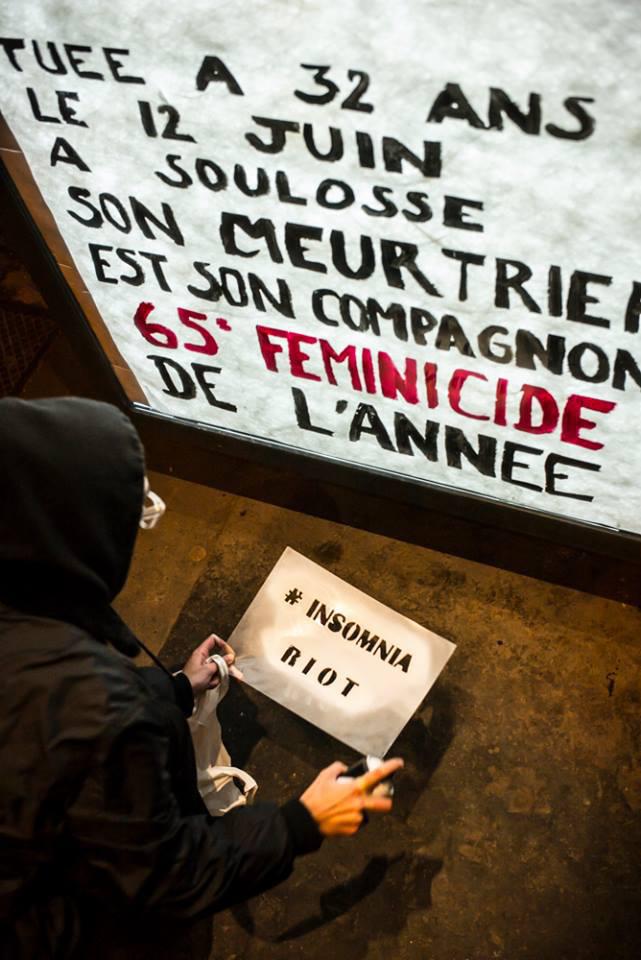 TUEE A 32 ANS
LE 12 JUIN
A SOULOSSE
SON MEURTRIER
EST SON COMPAGNON
65e FEMINICIDE
DE L'ANNEE
# INSOMNIA
RIOT